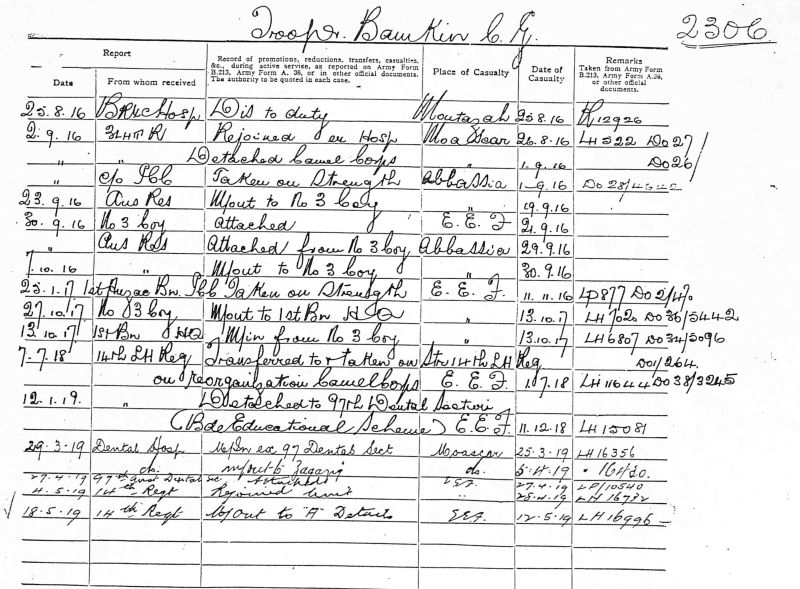 Trooper. Bamkin C. G. 2306
Report
Record of promotions, reductions, transfers, casualties, &c., during active service, as reported on Army Form B.213, Army Form A. 36, or in other official documents. The authority to be quoted in each case.
Place of Casualty
Date of Casualty
Remarks Taken from Army Form B.213, Army Form A.36, or other official documents.
Date From whom received
25.8.16 BRXC Hosp Dis to duty Montazah 25.8.16 12926
2.9.16 Rejoined ex Hosp Moascar 26.8.16 LH 522 Do 27/
" " Detached Camel Corps 1.9.16 Do 26/
" c/o ICC Taken on Strength Abbassia 1-9.16
23.9.16 Aus Res M/out to No 3 Coy " 19.9.16
30.9.16 No 3 Coy attached E.E.F 21.9.16
" Aus Res Attached from No 3 Coy, Abbassia 29.9.16
7.10.16 " M/out to No 3 Coy " 30.9.16
25.1.17 1st Anzac Bn. ICC Taken on Strength E.E.F. 11.11.16 LP877 Do 2/47
27.10.17 No 3 Coy M/out to 1st Bn HQ " 13.10.17 LH 702 Do 36/5442
13.10.17 1st Bn HQ M/in from No 3 Coy " 13.10.17 LH6807 Do 34/5096
7.7.18 14th LH Reg Transferred to & taken on Str 14th LH Reg Do1/264.
on reorganization Camel Corps E.E.F. 1.7.18 LH11644 Do 38/3245
12.1.19. " Detached to 97th Dental Section
(Bde Educational Scheme) E.E.F 11.12.18 LH 15081
29.3.19 Dental Hosp M/In ex 97 Dental Sect Moascar 25.3.19 LH16356
do. m/out to Zagazig do. 5.4.19 " 16420.
27.4.19 97th Aust Dental Sec Attached EEF 27.4.19 LP/10540
4.5.19 14th Regt Rejoined Unit " 25.4.19 LH 16732
18.5.19 14th Regt M/out to "A" Details EEF 12.5.19 LH 16996